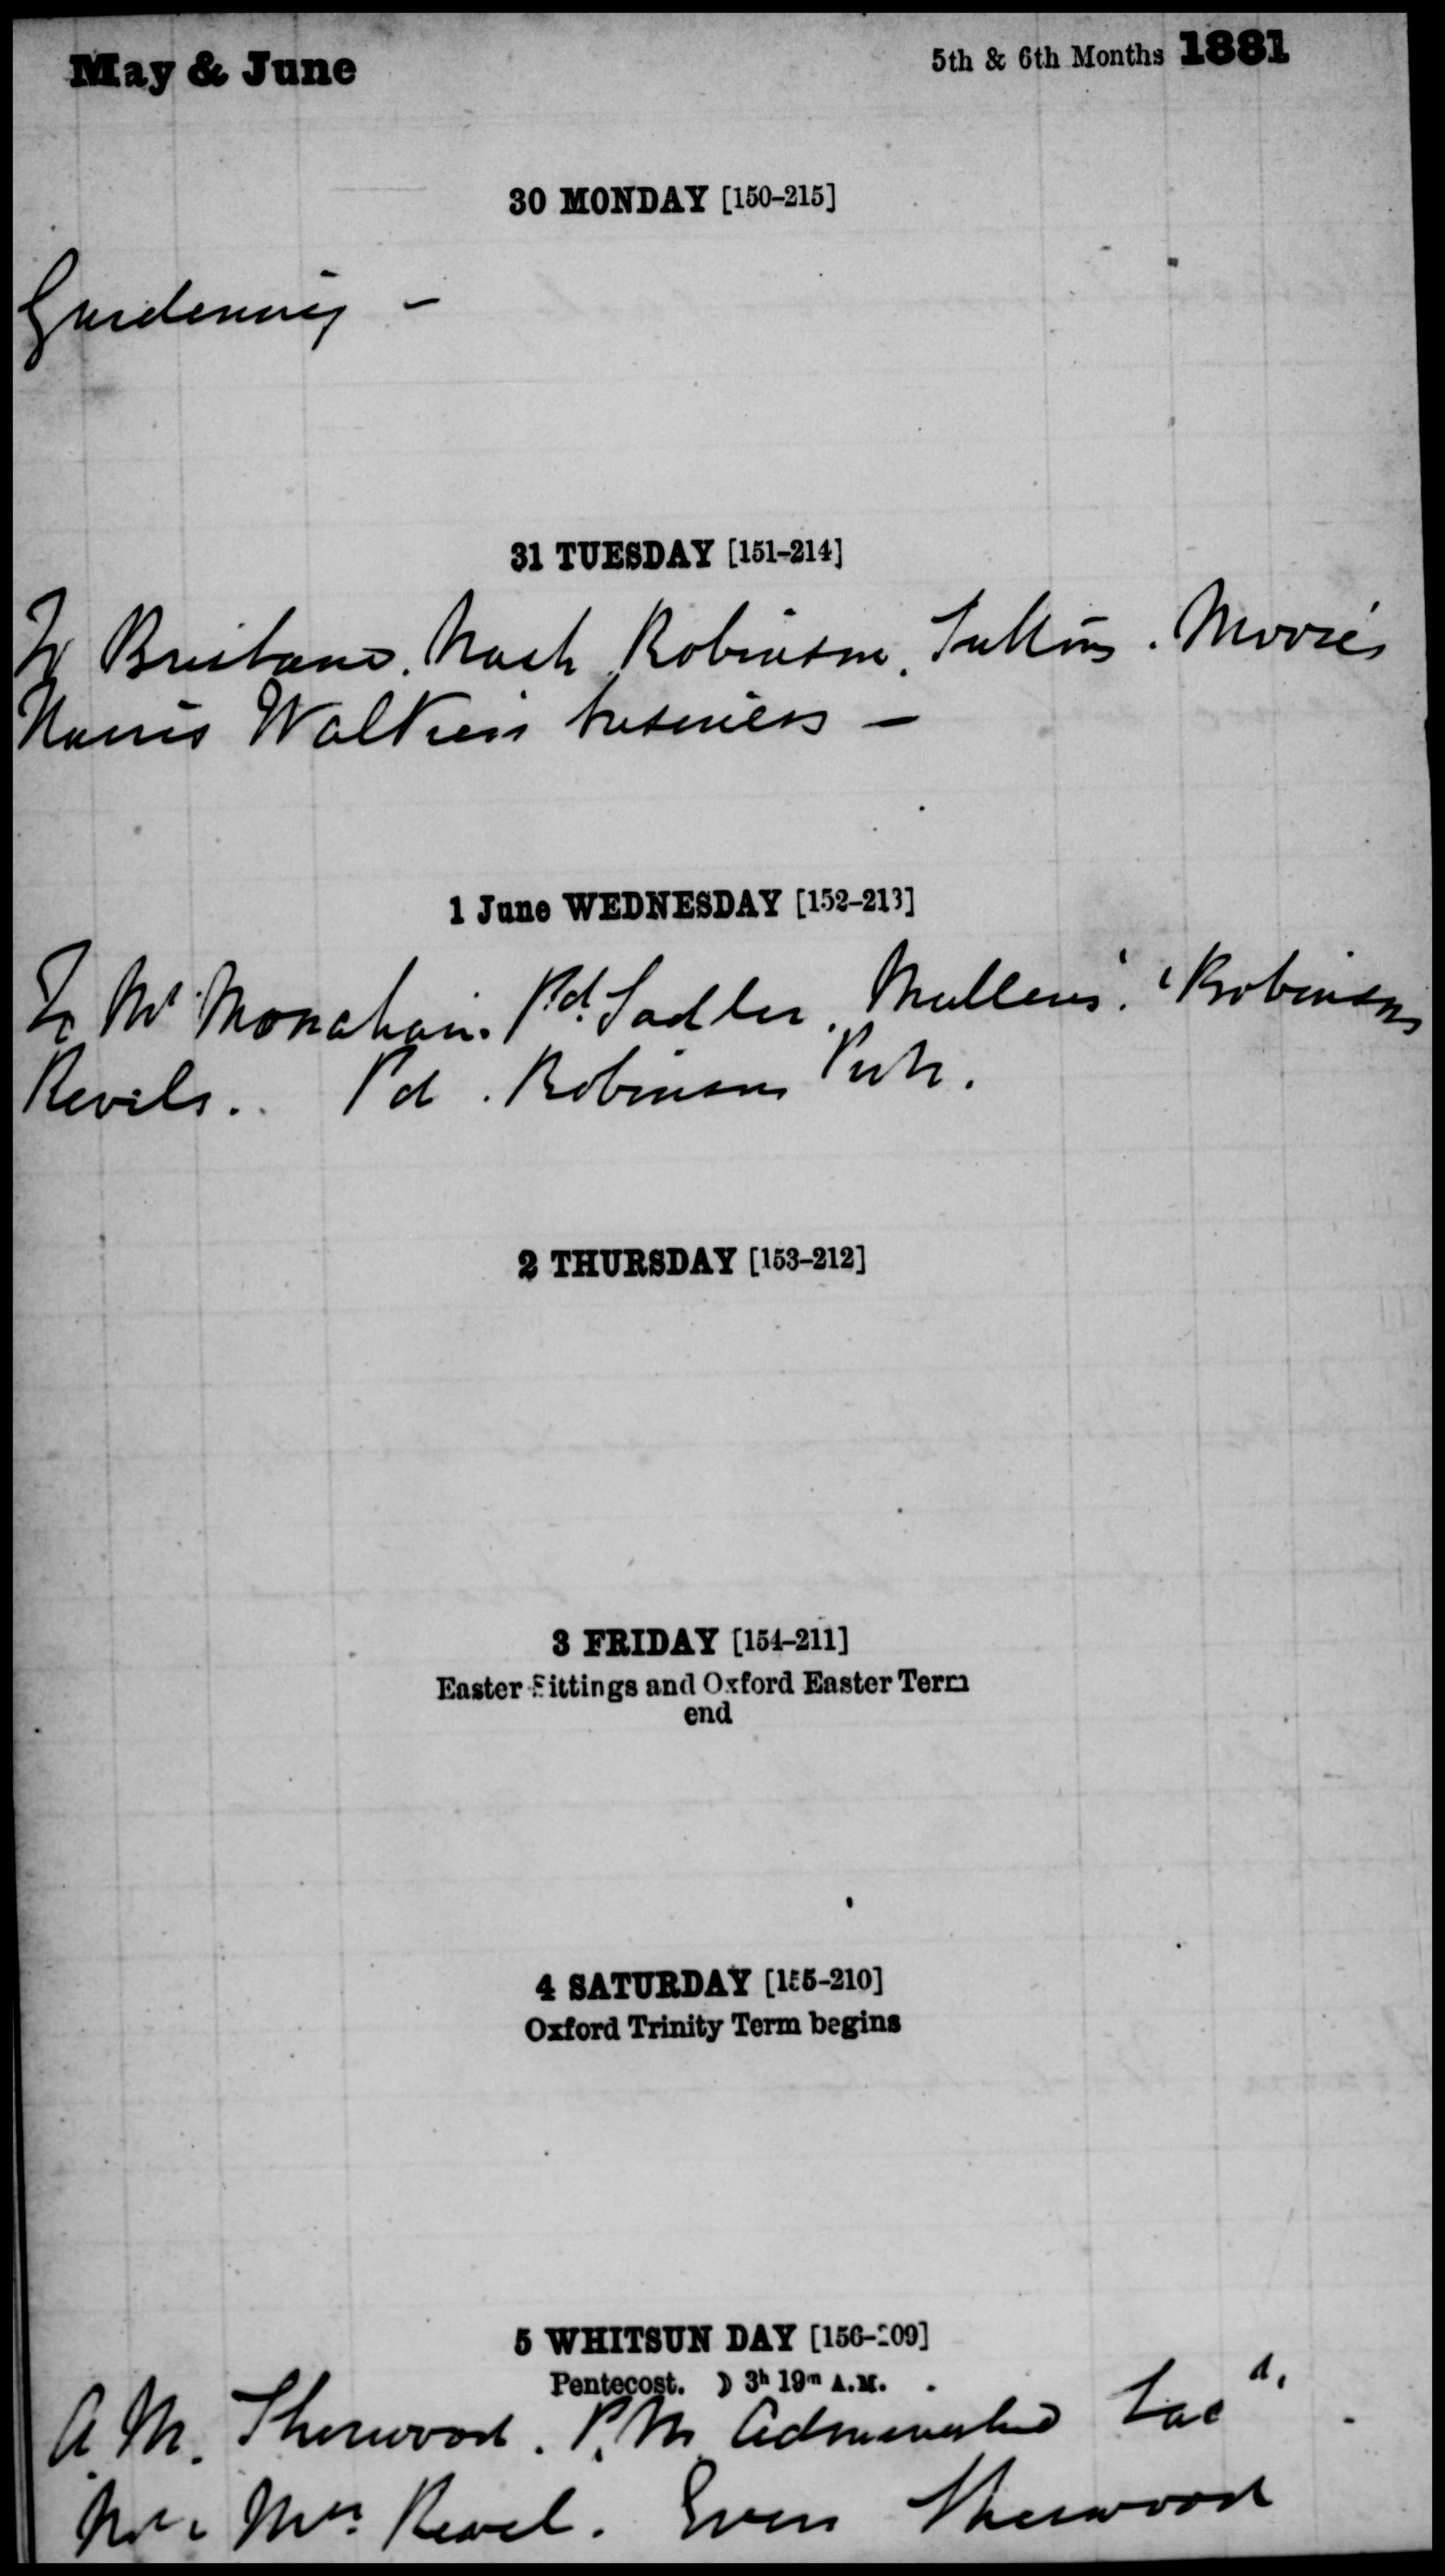 May & June 5th & 6th Months 1881
30 MONDAY [150-215]
Gardening -
31 TUESDAY [151-214]
To Brisbane. Nash Robinson. Suttons. Moores
Norris Walkers business -
1 June WEDNESDAY [152-213]
To Mr Monahan. Pd. Sadler. Mullens. Robinsons
Revels.. Pd. Robinsons
2 THURSDAY [153-212]
3 FRIDAY [154-211]
Easter Sittings and Oxford Easter Term
end
4 SATURDAY [155-210]
Oxford Trinity Term begins
5 WHITSUN DAY [156-209]
Pentecost. ☽ 3h 19m A.M.
A.M. Sherwood. P.M. Administered Sact.
Mr & Mrs Revel. Even Sherwood